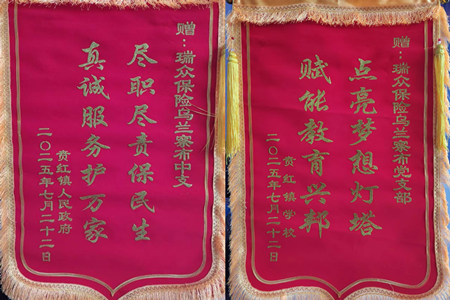 赠：瑞众保险乌兰察布中支
尽职尽责保民生
真诚服务护万家
贲红镇人民政府
二〇二五年七月二十二日
赠：瑞众保险乌兰察布党支部
点亮梦想灯塔
赋能教育兴邦
贲红镇学校
二〇二五年七月二十二日